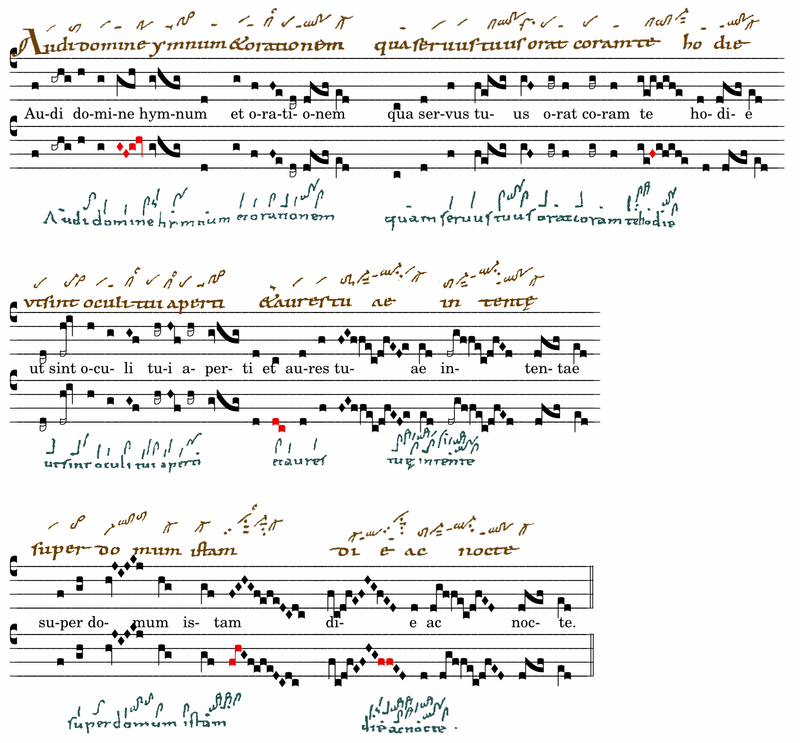 Audi domine ymnum & orationem quaseruustuus orat coramte ho die
Au-di do-mi-ne hym-num et o-ra-ti-o-nem qua ser-vus tu- us o-rat co-ram te ho-di- e
Audi domine hymnum et orationem quam seruus tuus orat coram te hodie
utsint oculi tui aperti & aures tu ae in tentę
ut sint o-cu- li tu-i a- per- ti et au-res tu- ae in- ten- tae
utsint oculi tui aperti et aures tuę intente
super do mum istam di e ac nocte
su-per do- mum is- tam di- e ac noc- te.
super domum istam die ac nocte.